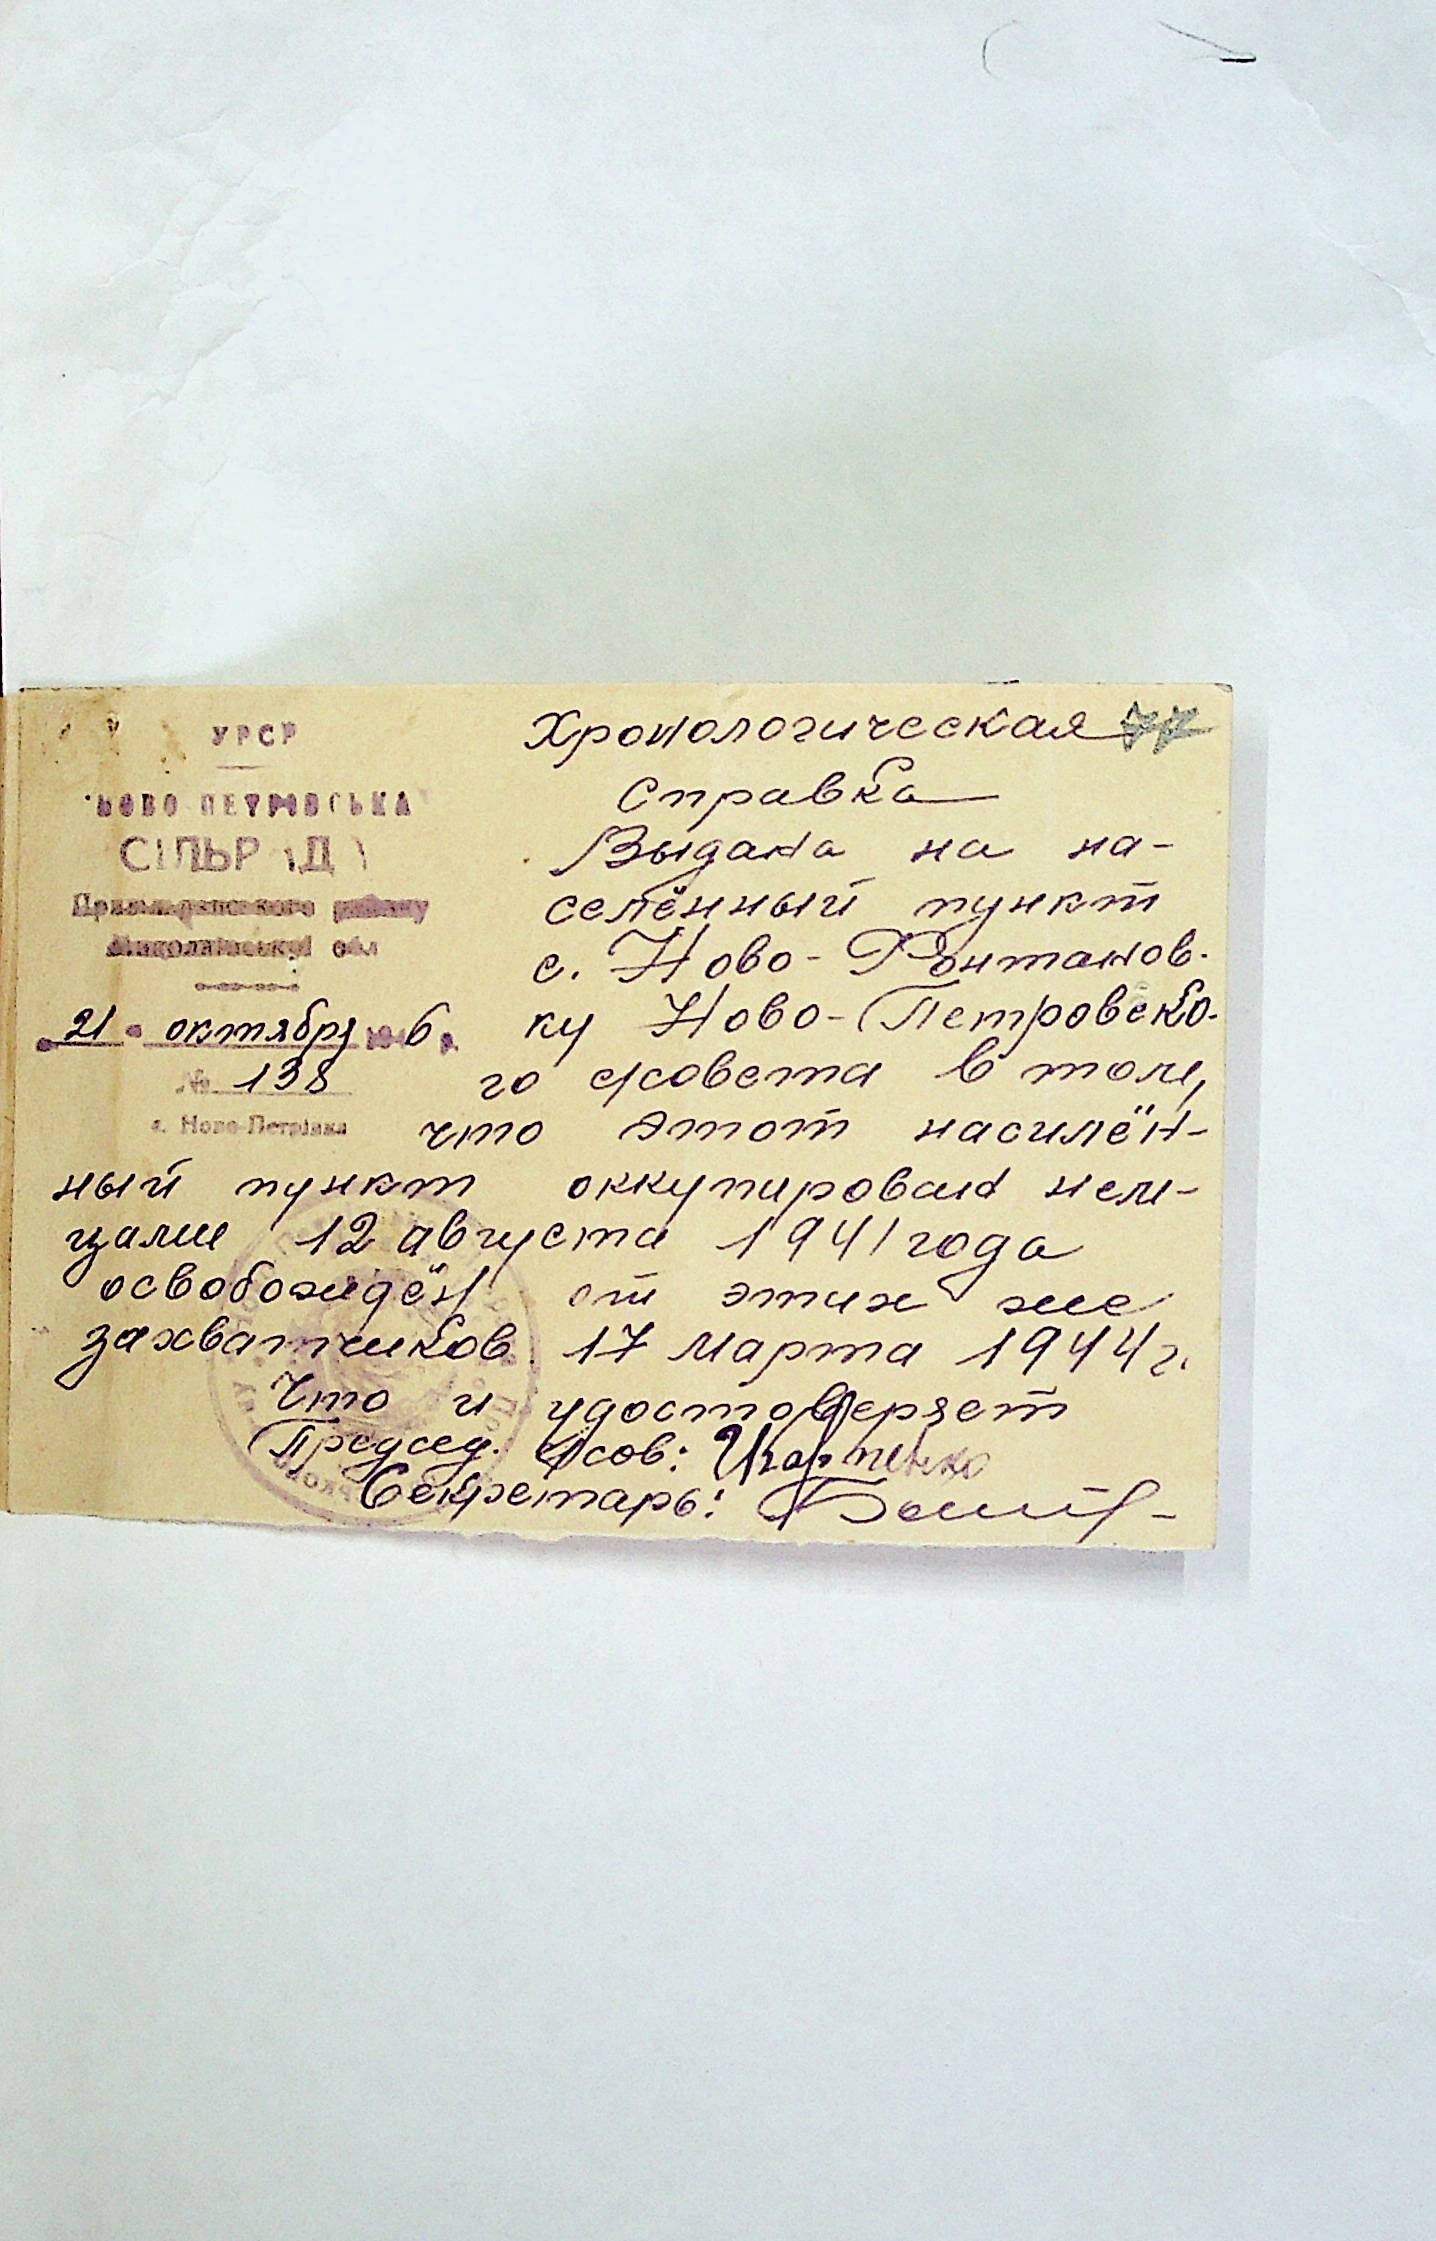 УРСР
НОВО ПЕТРОВСЬКА
СІЛЬРАДА
району
Миколаївської обл
21 октября 1946 р.
№ 138
с. Ново-Петрівка
77
Хронологическая
Справка
Выдана на на-
селённый пункт
с. Ново-Фонтанов-
ку Ново-Петровско-
го с/совета в том,
что этот насилён-
ный пункт оккупирован нем-
цами 12 августа 1941 года
освобождён от этих же
захватчиков 17 марта 1944 г.
Что и удостоверяет
Председ. с/сов:
Секретарь: